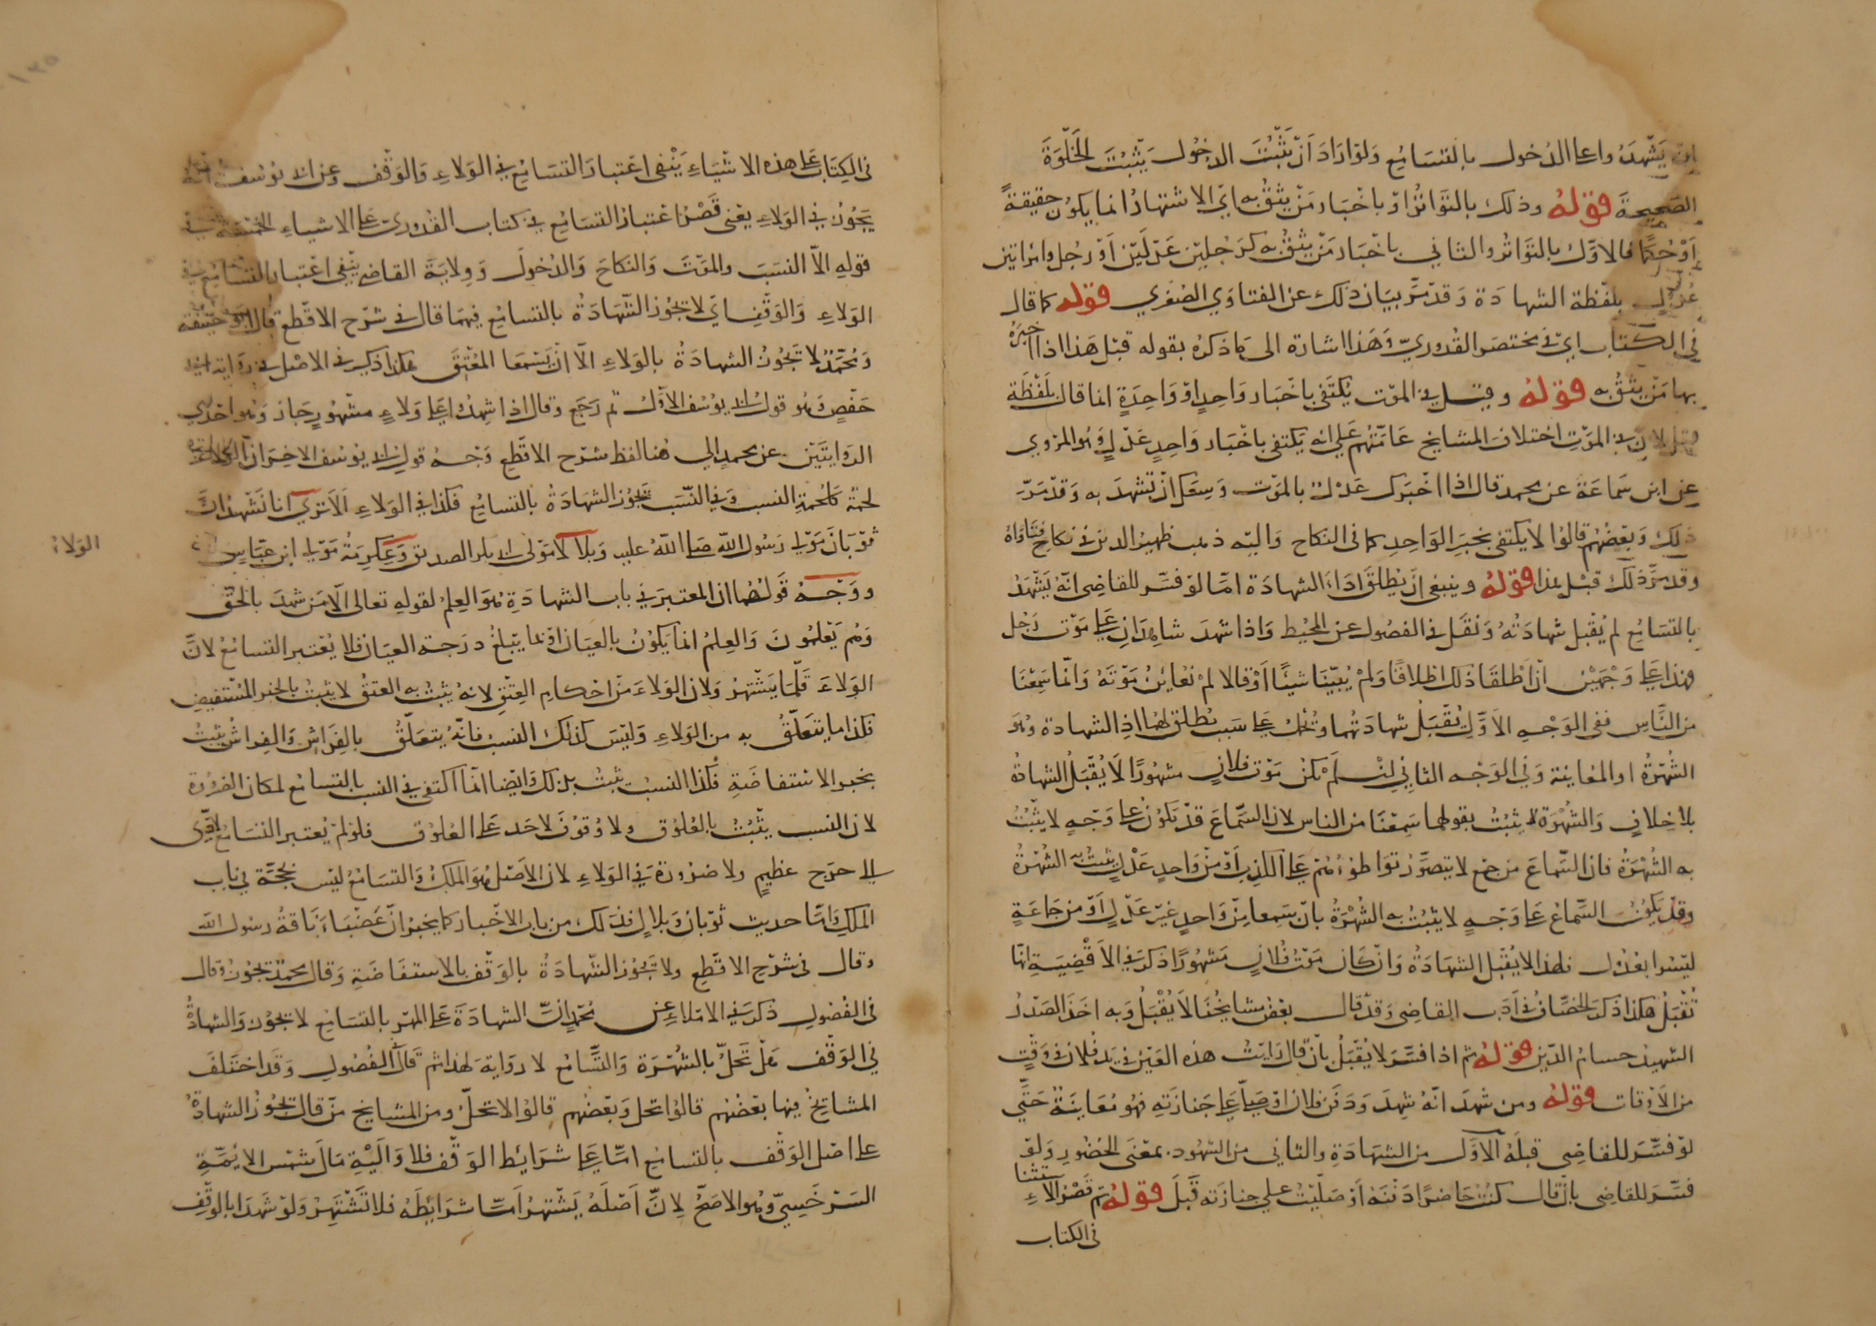 ان يشهدوا على الدخول بالتسامع ولو اراد ان يثبت الدخول يثبت الخلوة
الصحيحة قوله وذلك بالتواتر او باخبار من يثق به اي الاشتهار انما يكون حقيقة
او حكما فالاول بالتواتر والثاني باخبار من يثق به كرجلين عدلين او رجل وامراتين
عدول بلفظة الشهادة وقد مر بيان ذلك عن الفتاوي الصغري قوله كما قال
في الكتاب اي في مختصر القدوري وهذا اشارة الى ما ذكره بقوله قبل هذا اذا اخبره
بها من يثق به قوله وقيل في الموت يكتفى باخبار واحد او واحدة انما قال بلفظة
قيل لان في الموت اختلاف المشايخ عامتهم على انه يكتفى باخبار واحد عدل وهو المروي
عن ابن سماعة عن محمد قال اذا اخبرك عدل بالموت وسعك ان تشهد به وقد مر
ذلك وبعضهم قالوا لا يكتفى بخبر الواحد كما في النكاح واليه ذهب ظهير الدين في نكاح فتاواه
وقد مر ذلك قبل هذا قوله وينبغي ان يطلق اداء الشهادة اما لو فسر للقاضي انه يشهد
بالتسامع لم يقبل شهادته ونقل في الفصول عن المحيط واذا شهد شاهدان على موت رجل
فهذا على وجهين ان اطلقا ذلك اطلاقا ولم يبينا شيئا او قالا لم نعاين موته وانما سمعنا
من الناس ففي الوجه الاول يقبل شهادتهما وتحمل على سبب يطلق لهما اداء الشهادة وهو
الشهرة او المعاينة وفي الوجه الثاني ان لم يكن موت فلان مشهورا لا يقبل الشهادة
بلا خلاف والشهرة لا يثبت بقولهما سمعنا من الناس لان السماع قد يكون على وجه لا يثبت
به الشهرة فان السماع من جمع لا يتصور تواطؤهم على الكذب او من واحد عدل يثبت به الشهرة
وقد يكون السماع على وجه لا يثبت به الشهرة بان سمعا من واحد غير عدل او من جماعة
ليسوا بعدول فلهذا لا يقبل الشهادة وان كان موت فلان مشهورا ذكر في الاقضية انها
تقبل هكذا ذكر الخصاف في ادب القاضي وقد قال بعض مشايخنا لا يقبل وبه اخذ الصدر
الشهيد حسام الدين قوله ثم اذا فسر لا يقبل بان قال رايت هذه العين في يد فلان في وقت
من الاوقات قوله ومن شهد انه شهد ودفن فلان او صلى على جنازته فهو معاينة حتى
لو فسر للقاضي قبله الاول من الشهادة والثاني من الشهود بمعنى الحضور ولو
فسر للقاضي بان قال كنت حاضرا دفنه او صليت على جنازته قبل قوله ثم قصر الاستثناء
في الكتاب
في الكتاب على هذه الاشياء ينفى اعتبار التسامع في الولاء والوقف وعن ابي يوسف انه
يجوز في الولاء يعني قصر اعتبار التسامع في كتاب القدوري على الاشياء الخمسة في
قوله الا النسب والموت والنكاح والدخول وولاية القاضي ينفى اعتبار التسامع في
الولاء والوقف اي لا يجوز الشهادة بالتسامع فيهما قال في شرح الاقطع قال ابو حنيفة
ومحمد لا تجوز الشهادة بالولاء الا ان يسمعا المعتق هكذا ذكر في الاصل في رواية ابي
حفص وهو قول ابي يوسف الاول ثم رجع وقال اذا شهدا على ولاء مشهور جاز وهو احدى
الروايتين عن محمد الى هنا لفظ شرح الاقطع وجه قول ابي يوسف الاخر ان الولاء
لحمة كلحمة النسب وفي النسب تجوز الشهادة بالتسامع فكذا في الولاء الا ترى انا نشهد ان
ثوبان مولى رسول الله صلى الله عليه وبلالا مولى ابي بكر الصديق وعكرمة مولى ابن عباس
الولاء
ووجه قولهما ان المعتبر في باب الشهادة هو العلم لقوله تعالى الا من شهد بالحق
وهم يعلمون والعلم انما يكون بالعيان او بما يبلغ درجة العيان فلا يعتبر التسامع لان
الولاء قلما يشتهر ولان الولاء من احكام العتق لانه يثبت به العتق لا يثبت بالخبر المستفيض
فكذا ما يتعلق به من الولاء وليس كذلك النسب فانه يتعلق بالفراش والفراش يثبت
بخبر الاستفاضة فكذا النسب يثبت بذلك وايضا انما اكتفى في النسب بالتسامع لمكان الضرورة
لان النسب يثبت بالعلوق ولا وقوف لاحد على العلوق فلو لم يعتبر التسامع لادى
الى حرج عظيم ولا ضرورة في الولاء لان الاصل هو الملك والتسامع ليس بحجة في باب
الملك واما حديث ثوبان وبلال فذلك من باب الاخبار كما يخبر ان عضباء ناقة رسول الله
وقال في شرح الاقطع ولا تجوز الشهادة بالوقف بالاستفاضة وقال محمد تجوز وقال
في الفصول ذكر في الاملاء عن محمد ان الشهادة على المهر بالتسامع لا يجوز والشهادة
في الوقف هل تحل بالشهرة والتسامع لا رواية لهذا ثم قال الفصول وقد اختلف
المشايخ فيها بعضهم قالوا تحل وبعضهم قالوا لا تحل ومن المشايخ من قال تجوز الشهادة
على اصل الوقف بالتسامع اما على شرايط الوقف فلا واليه مال شمس الايمة
السرخسي وهو الاصح لان اصله يشتهر اما شرايطه فلا تشتهر ولو شهدا بالوقف